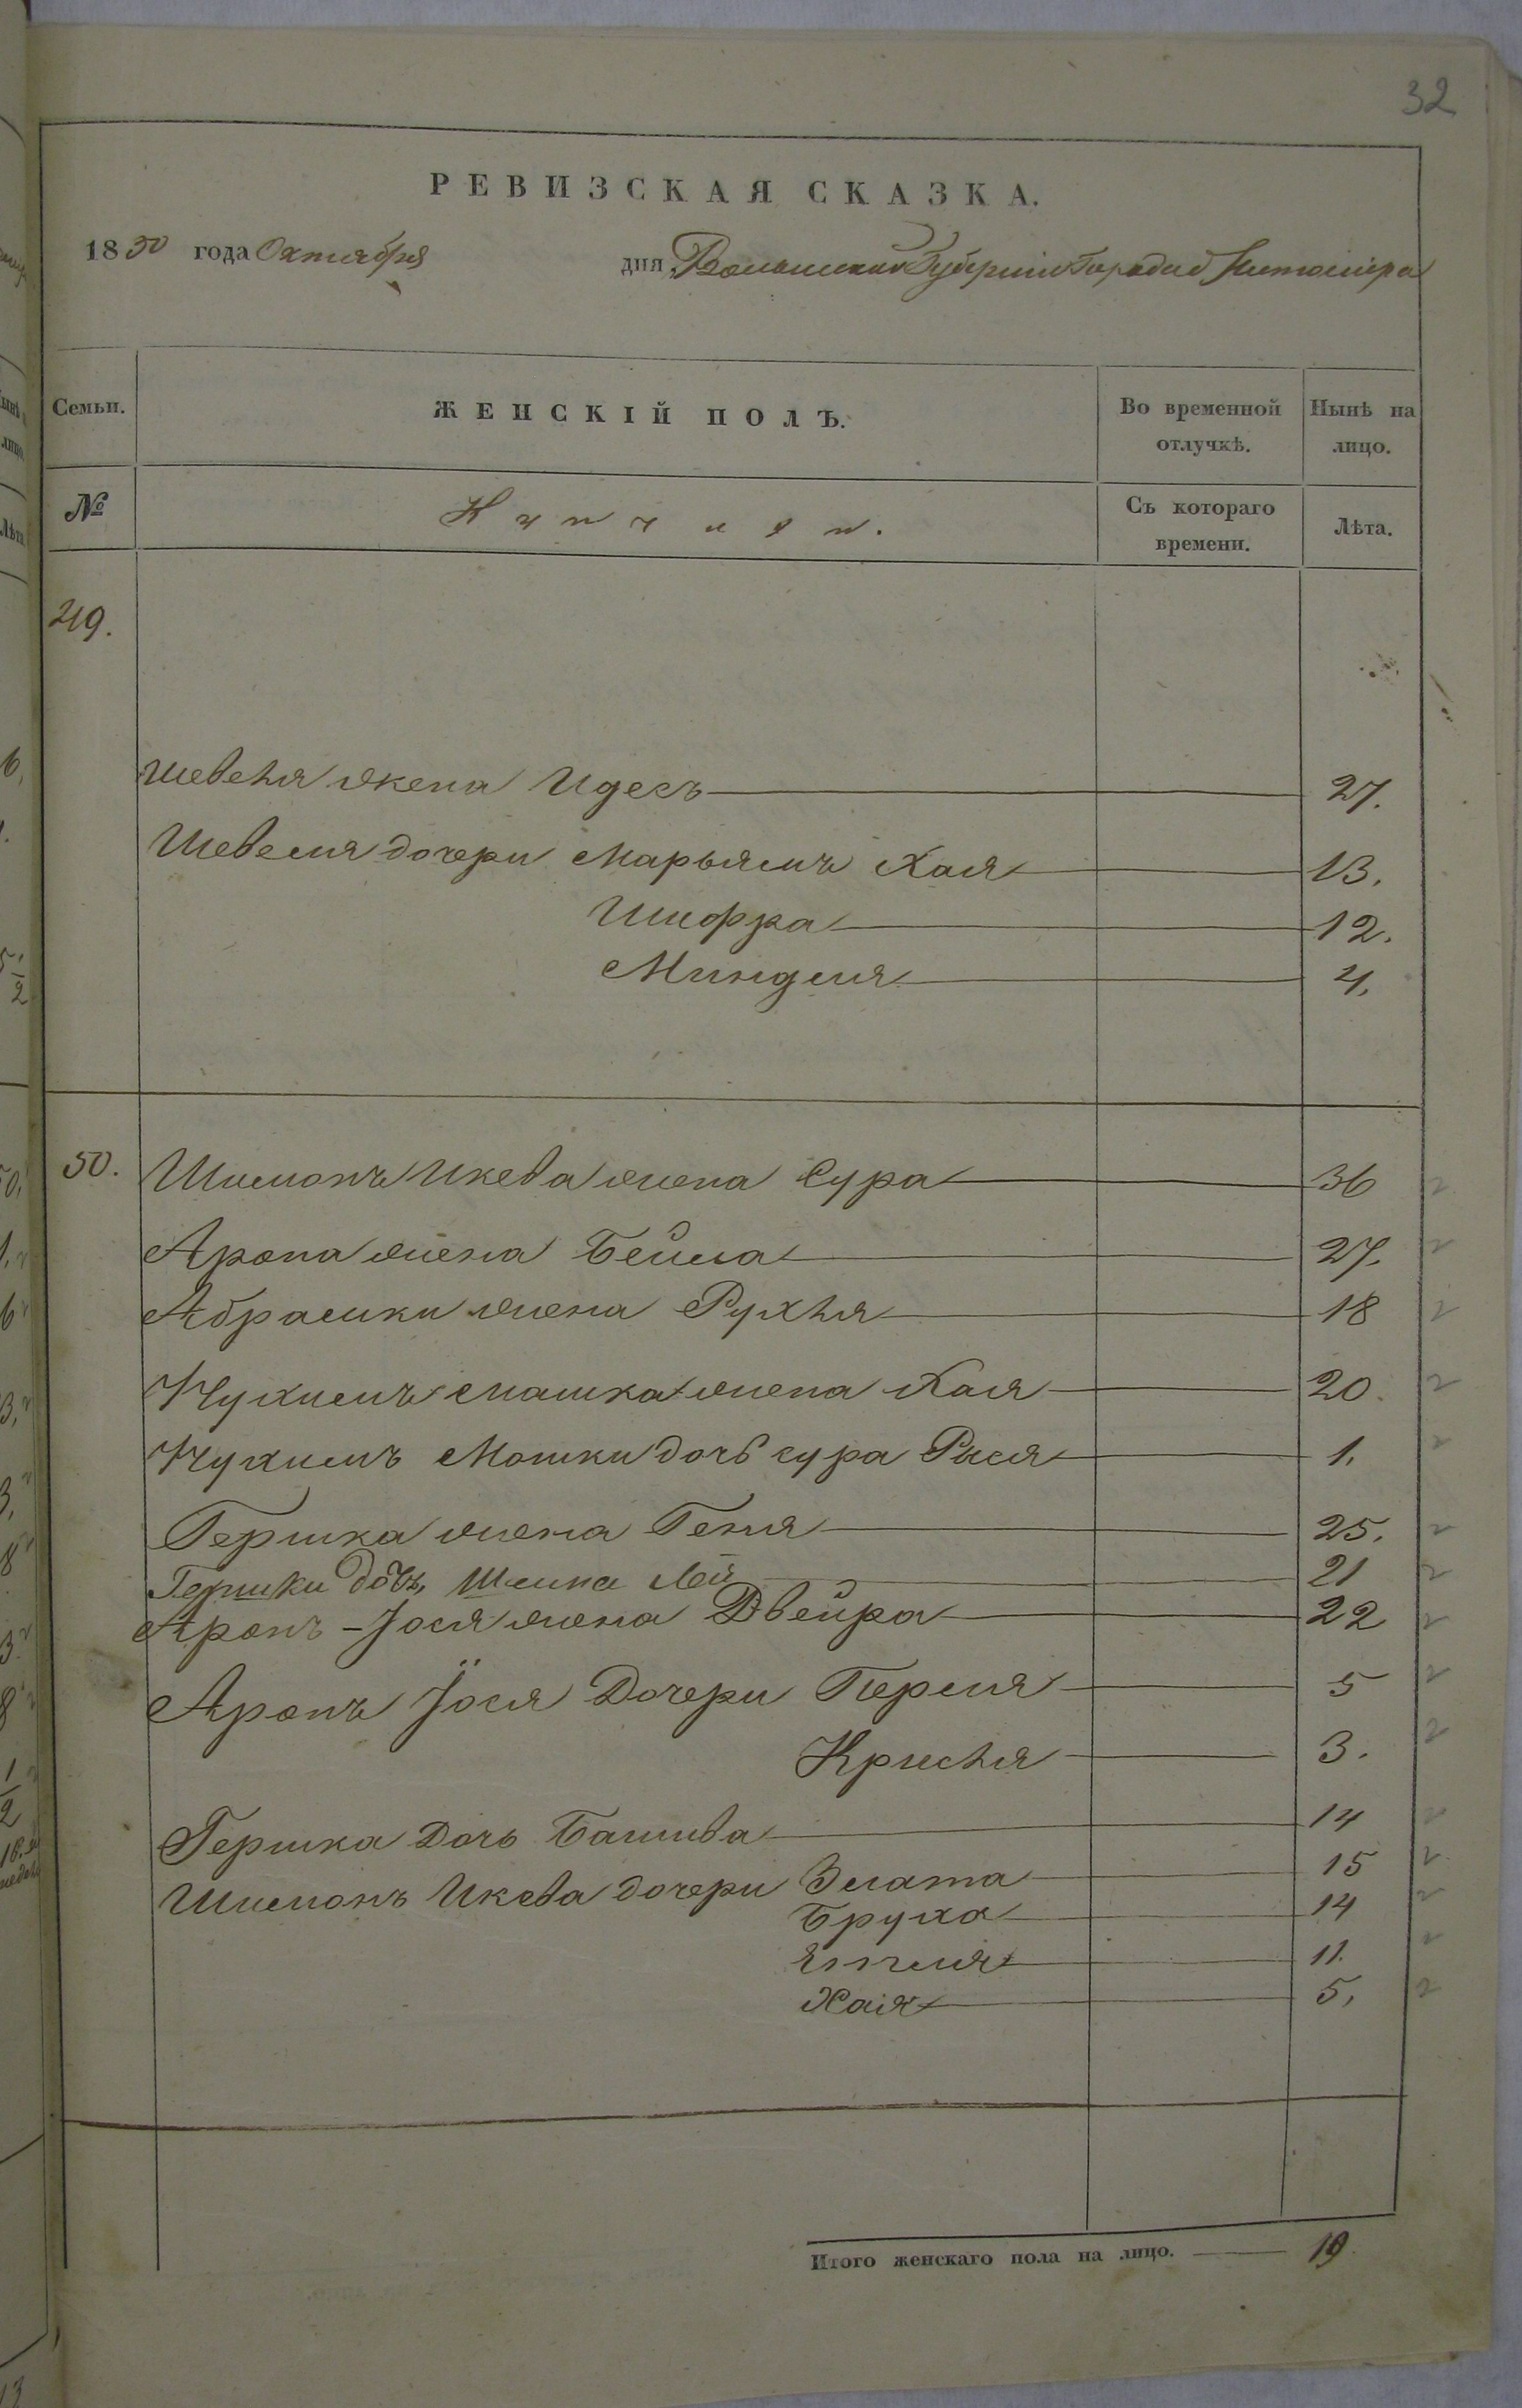 32
РЕВИЗСКАЯ СКАЗКА.
1850 года Октября дня Волынской Губернии Города Житомира
Семьи. ЖЕНСКІЙ ПОЛЪ. Во временной отлучкѣ. Нынѣ на лицо.
№ Съ котораго времени. Лѣта.
49.
Шевеля жена Идесъ 27.
Шевеля дочери Марьямъ Хая 13.
Шифра 12.
Миндля 4.
50. Шимонъ Икева жена Сура 36
Арона жена Бейла 27.
Абрамки жена Рухля 18
Нухимъ Мошка жена Хая 20.
Нухимъ Мошки дочь сура Рыся 1.
Гершка жена Геня 25.
Гершки дочь, 21
Аронъ-Іося жена Двейра 22
Аронъ Іося Дочери Перля 5
Крисля 3.
Гершка Дочь Башива 14
Шимонъ Икева дочери Злата 15
Бруха 14
Энтля 11.
Хаія 5,
Итого женскаго пола на лицо. 19